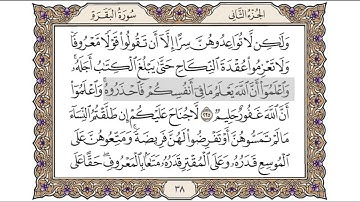 الجزء الثاني
سورة البقرة
وَلَٰكِن لَّا تُوَاعِدُوهُنَّ سِرًّا إِلَّا أَن تَقُولُوا۟ قَوْلًا مَّعْرُوفًا
وَلَا تَعْزِمُوا۟ عُقْدَةَ ٱلنِّكَاحِ حَتَّىٰ يَبْلُغَ ٱلْكِتَٰبُ أَجَلَهُۥ
وَٱعْلَمُوٓا۟ أَنَّ ٱللَّهَ يَعْلَمُ مَا فِىٓ أَنفُسِكُمْ فَٱحْذَرُوهُ وَٱعْلَمُوٓا۟
أَنَّ ٱللَّهَ غَفُورٌ حَلِيمٌ ٢٣٥ لَّا جُنَاحَ عَلَيْكُمْ إِن طَلَّقْتُمُ ٱلنِّسَآءَ
مَا لَمْ تَمَسُّوهُنَّ أَوْ تَفْرِضُوا۟ لَهُنَّ فَرِيضَةً وَمَتِّعُوهُنَّ عَلَى
ٱلْمُوسِعِ قَدَرُهُۥ وَعَلَى ٱلْمُقْتِرِ قَدَرُهُۥ مَتَٰعًۢا بِٱلْمَعْرُوفِ حَقًّا عَلَى
٣٨